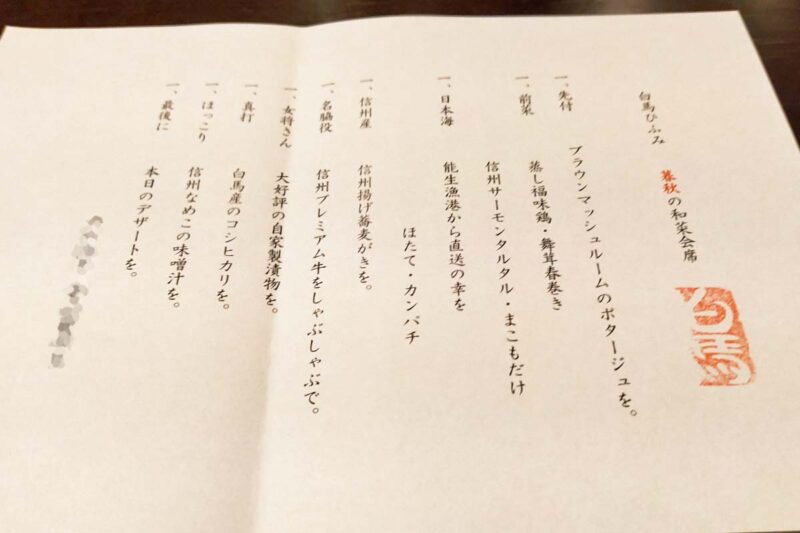 白馬ひふみ 暮秋の和菜会席
一、先付 ブラウンマッシュルームのポタージュを。
一、前菜 蒸し福味鶏・舞茸春巻き
信州サーモンタルタル・まこもだけ
一、日本海 能生漁港から直送の幸を
ほたて・カンパチ
一、信州産 信州揚げ蕎麦がきを。
一、名脇役 信州プレミアム牛をしゃぶしゃぶで。
一、女将さん 大好評の自家製漬物を。
一、真打 白馬産のコシヒカリを。
一、ほっこり 信州なめこの味噌汁を。
一、最後に 本日のデザートを。